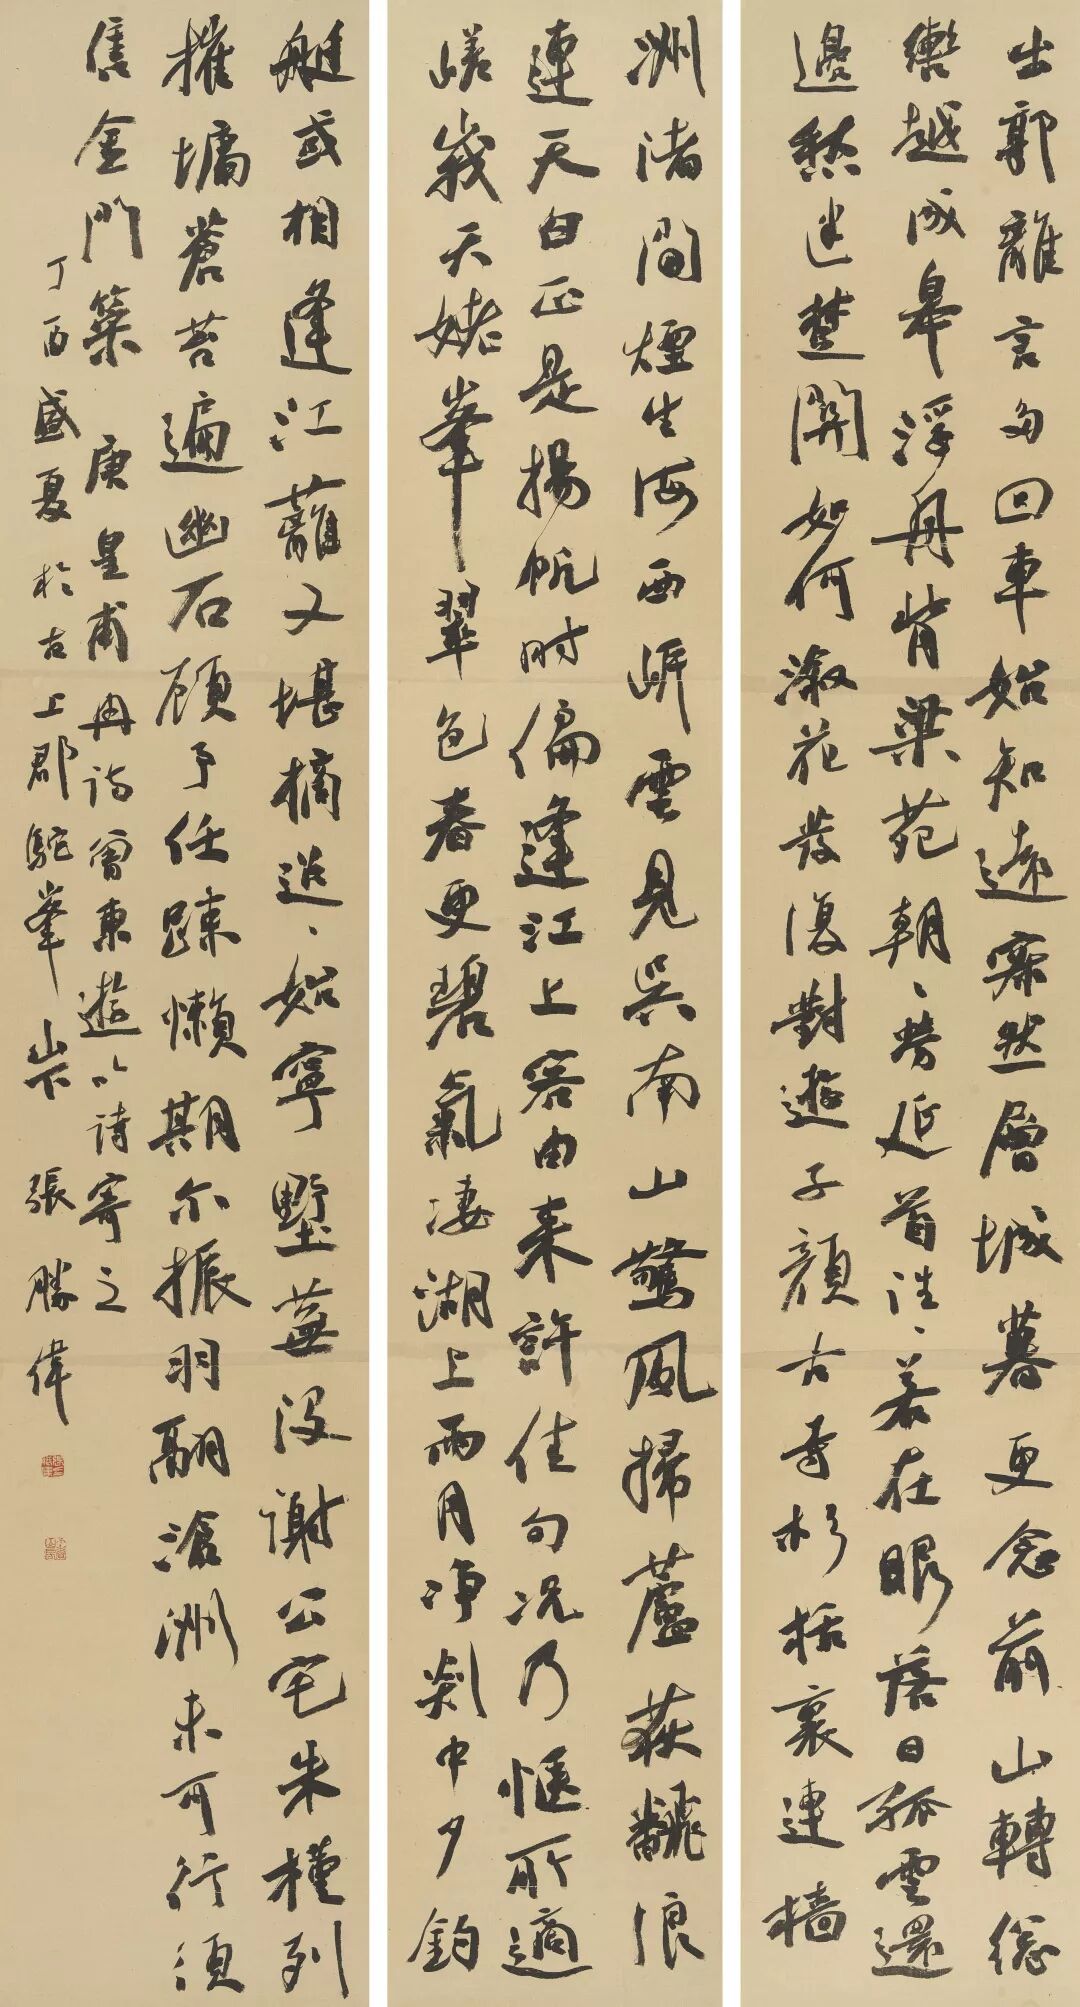 出郭離言多回車始知遠寂然層城暮更念前山轉總
轡越成皋浮舟背梁苑朝〻勞延首往〻若在眼落日孤雲還
邊愁迷楚關如何溆花發復對遊子顏古寺杉栝裏連檣
洲渚間煙生海西岸雲見吳南山驚風掃蘆荻飜浪
連天白正是揚帆時偏逢江上客由來許佳句況乃愜所適
嵯峩天姥峯翠色春更碧氣淒湖上雨月淨剡中夕釣
艇或相逢江蘺又堪摘迢〻始寧墅蕪沒謝公宅朱槿列
摧墉蒼苔遍幽石顧予任踈懶期尔振羽翮滄洲未可行須
售金門策 唐皇甫冉詩曾東遊以詩寄之
丁酉盛夏於古上郡駝峯山下張勝偉